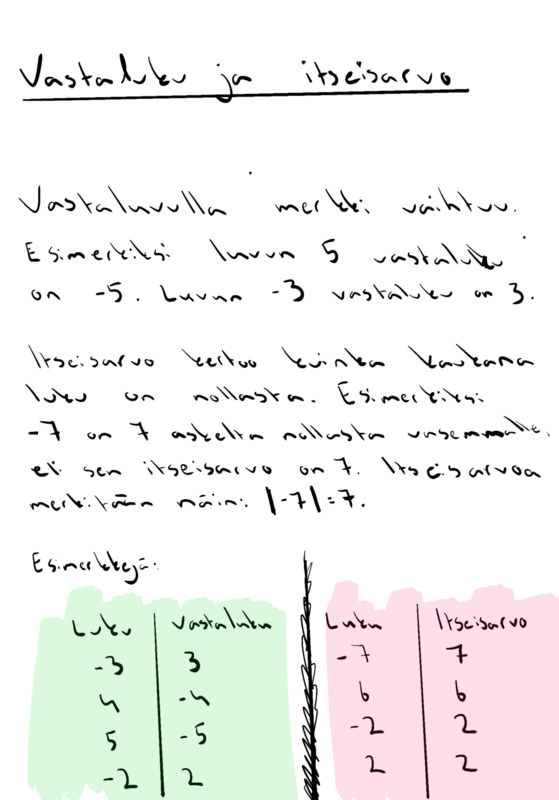 Vastaluku ja itseisarvo
Vastaluvulla merkki vaihtuu.
Esimerkiksi luvun 5 vastaluku
on -5. Luvun -3 vastaluku on 3.
Itseisarvo kertoo kuinka kaukana
luku on nollasta. Esimerkiksi
-7 on 7 askelta nollasta vasemmalle,
eli sen itseisarvo on 7. Itseisarvoa
merkitään näin: |-7|=7.
Esimerkkejä:
Luku Vastaluku Luku Itseisarvo
-3 3 -7 7
4 -4 6 6
5 -5 -2 2
-2 2 2 2